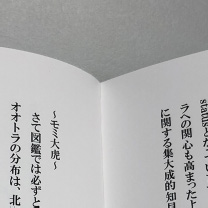 statusとなってい
ラへの関心も高まった上
に関する集大成的知見
〜モミ大虎〜
さて図鑑では必ずと
オオトラの分布は、北